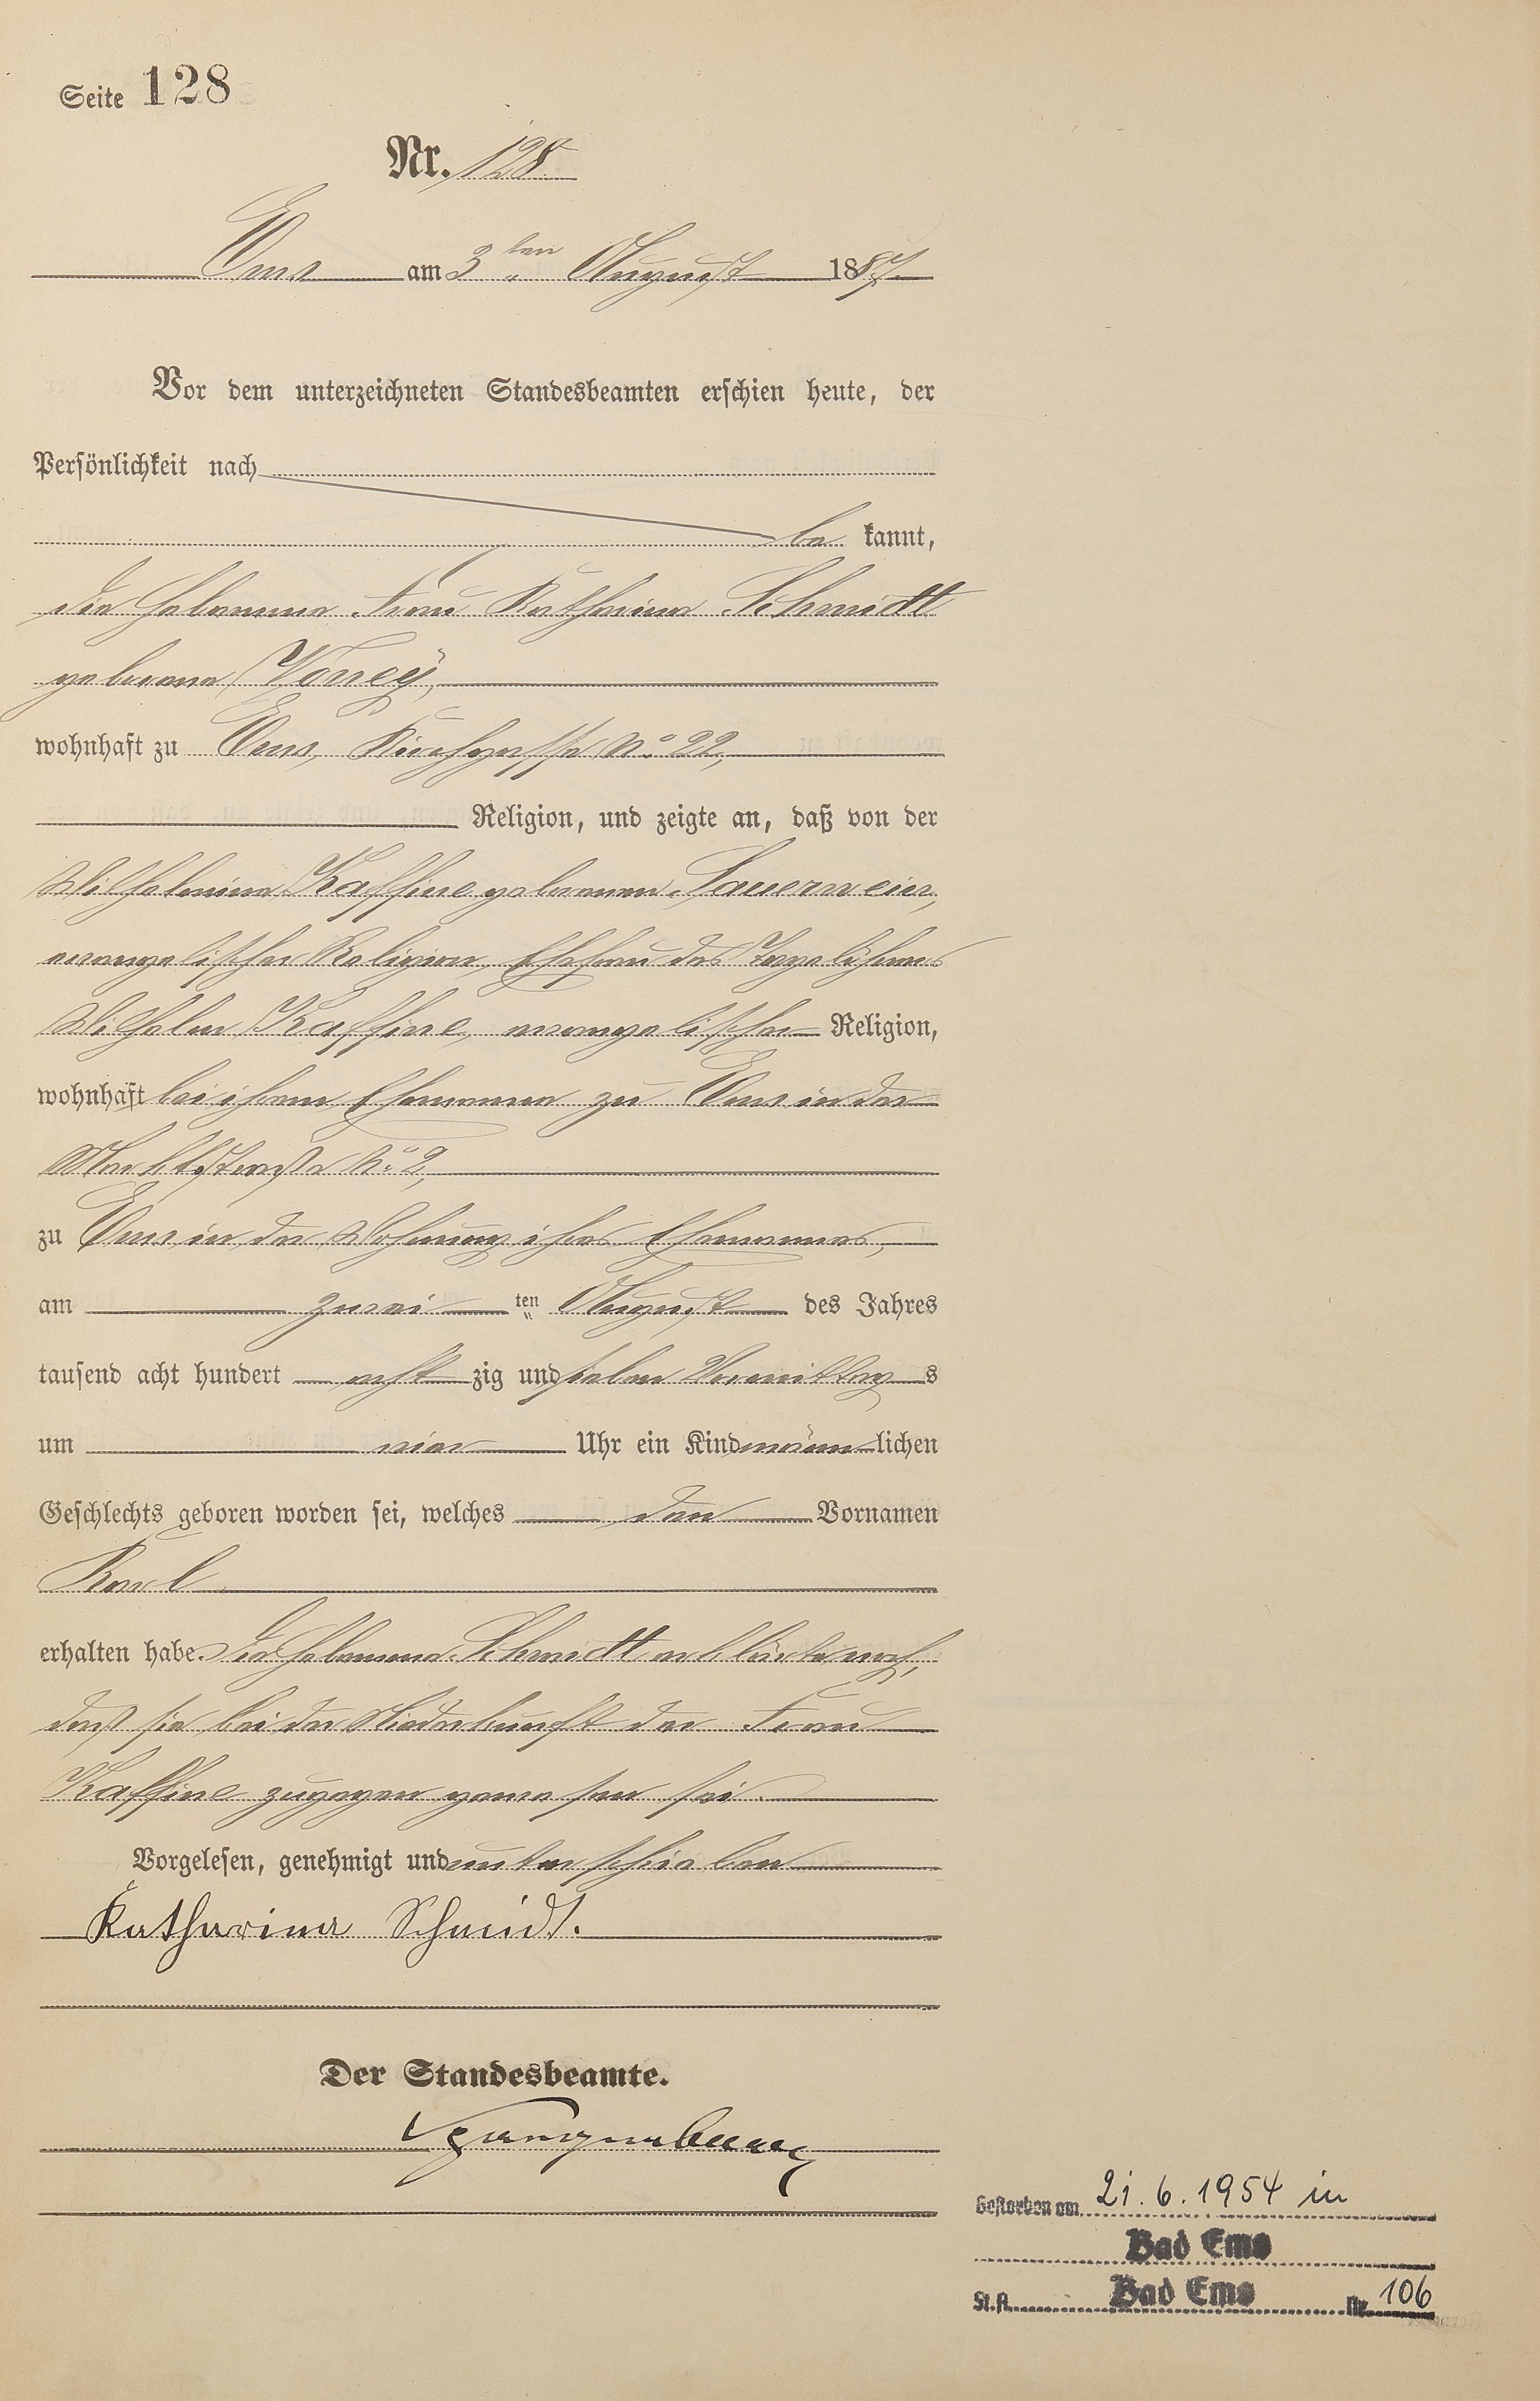 Seite 128
Nr. 128.
Ems am 3ten August 1887.
Vor dem unterzeichneten Standesbeamten erschien heute, der
Persönlichkeit nach
be kannt,
die Hebamme Frau Katharina Schmidt
geborene Vöney,
wohnhaft zu Ems, Kirchgasse No 22,
Religion, und zeigte an, daß von der
Wilhelmine Kaffine geborenen Sauerwein,
evangelischer Religion, Ehefrau des Tagelöhners
Wilhelm Kaffine, evangelischer Religion,
wohnhaft bei ihrem Ehemanne zu Ems in der
Marktstraße No 2,
zu Ems in der Wohnung ihres Ehemannes,
am zwei ten August des Jahres
tausend acht hundert acht zig und sieben Vormittag s
um vier Uhr ein Kind männ lichen
Geschlechts geboren worden sei, welches den Vornamen
Karl
erhalten habe. Die Hebamme Schmidt erklärte noch,
daß sie bei der Niederkunft der Frau
Kaffine zugegen gewesen sei.
Vorgelesen, genehmigt und unterschrieben
Katharina Schmidt.
Der Standesbeamte.
Gestorben am 21.6.1954 in
Bad Ems
St.A. Bad Ems Nr. 106